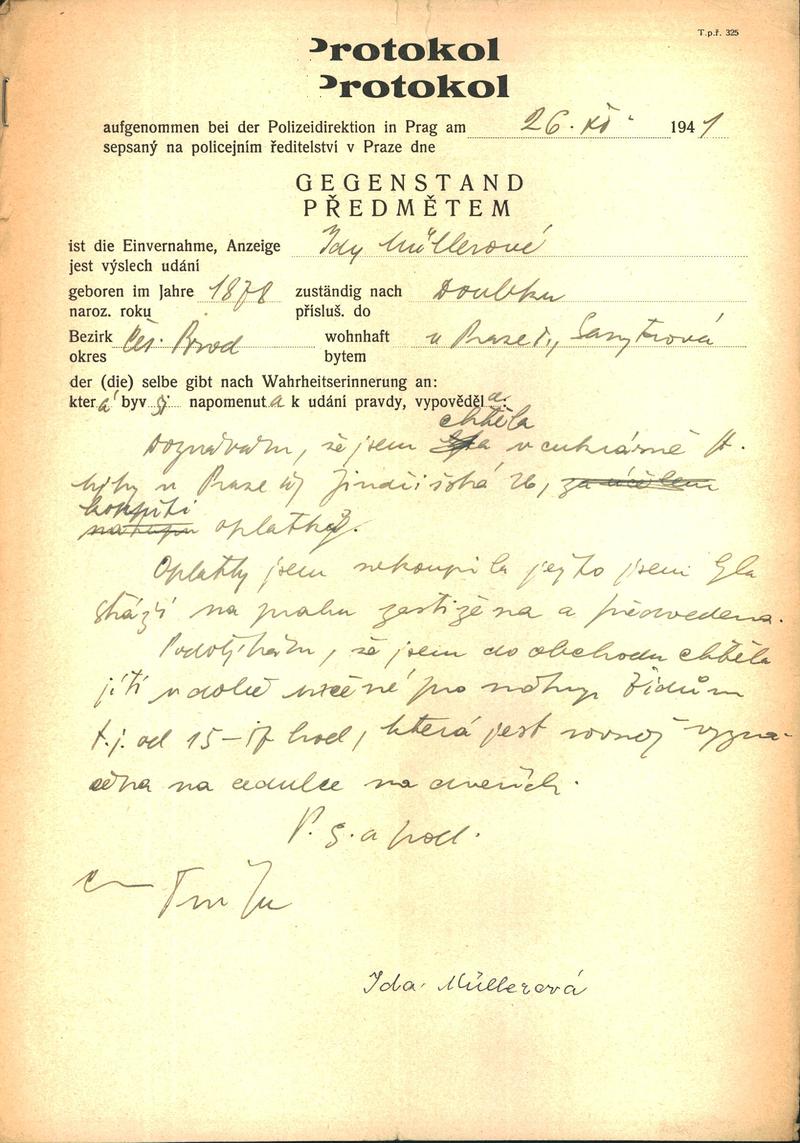 T.p.ř. 325
Protokol
Protokol
aufgenommen bei der Polizeidirektion in Prag am 26. XI. 1941
sepsaný na policejním ředitelství v Praze dne
GEGENSTAND
PŘEDMĚTEM
ist die Einvernahme, Anzeige Idy Müllerové
jest výslech udání
geboren im Jahre 1878 zuständig nach Doubku
naroz. roku přísluš. do
Bezirk Čes. Brod wohnhaft v Praze
okres bytem
der (die) selbe gibt nach Wahrheitserinnerung an:
která byvši napomenuta k udání pravdy, vypověděla:
chtěla
Doznávám, že jsem byla v cukrárně
v Praze II Jindřišská 26, za účelem
koupiti
nákupu oplatky.
Oplatky jsem nekoupila ježto jsem byla
stráží na prahu zastižena a předvedena.
Podotýkám, že jsem do obchodu chtěla
jíti v době určené pro nákup židům
t.j. od 15-17 hod, která jest rovněž vyzna-
čena na cedulce na dveřích.
P. s. a pod.
Ida Müllerová